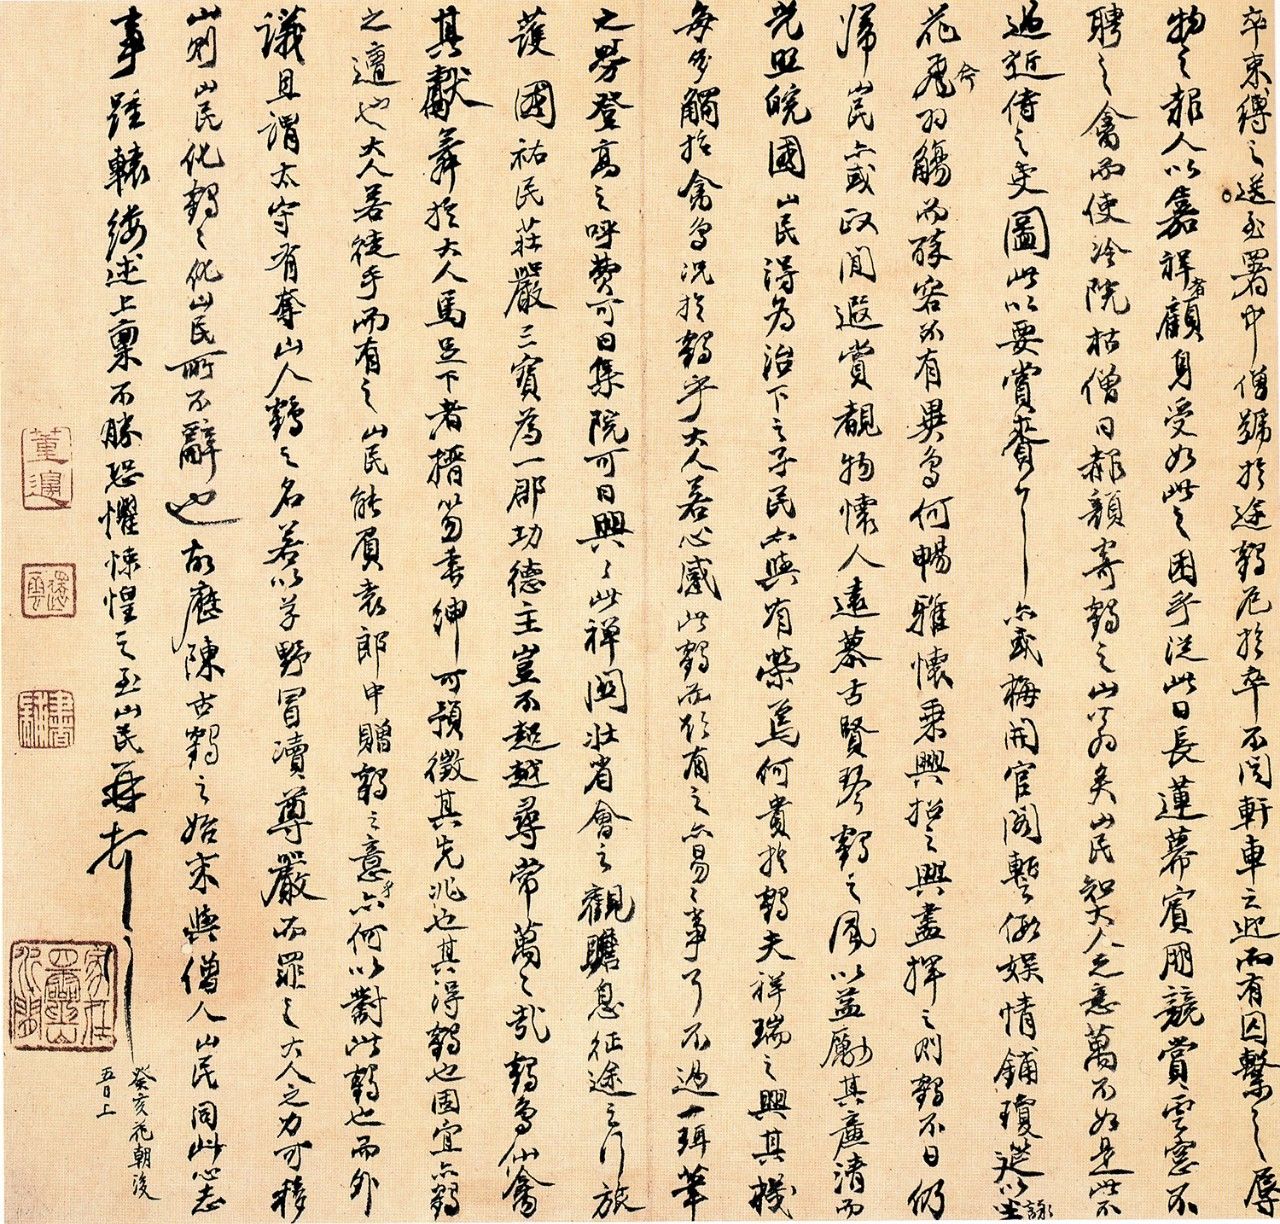 卒束縛之送至署中僧號於途鶴厄於卒不聞軒車之迎而有囚繫之辱
物之報人以嘉祥者顧身受如此之困乎從此日長蓮幕賓朋競賞雲窓不
聘之禽而使冷院枯僧日赧顏寄鶴之山翁矣山民知大人之意萬不如是此不
過近侍之吏圖此以要賞賚耳亦或梅開官閣暫假娛情鋪瓊筵以坐
花飛羽觴而醉客忽有異鳥何暢雅懷乘興招之興盡揮之則鶴不日仍
歸山民亦或政閒遐賞覩物懷人遠慕古賢琴鶴之風以益勵其廉清而
光照皖國山民得為治下之子民與有榮焉何貴於鶴夫祥瑞之興其機
每多觸於禽鳥況於鶴乎大人若心感此鶴而欲有之亦易之事耳不過一珥筆
之勞登高之呼費可日集院可日興此禪關壯省會之觀瞻息征途之行旅
護國祐民莊嚴三寶為一郡功德主豈不超越尋常萬萬哉鶴鳥仙禽
其獻舞於大人馬足下者搢笏垂紳可預徵其先兆也其得鶴也固宜亦鶴
之遭也大人若徒手而有之山民能負袁郎中贈鶴之意乎亦何以對此鶴也而外
議且謂太守有奪山人鶴之名若以草野冒瀆尊嚴而罪之大人之力可移
山則山民化鶴之化山民所不辭也故歷陳古鶴之始末與僧人山民同此心志
事踵轅縷述上稟不勝恐懼悚惶之至山民
癸亥花朝後
五日上
家在四靈山水間